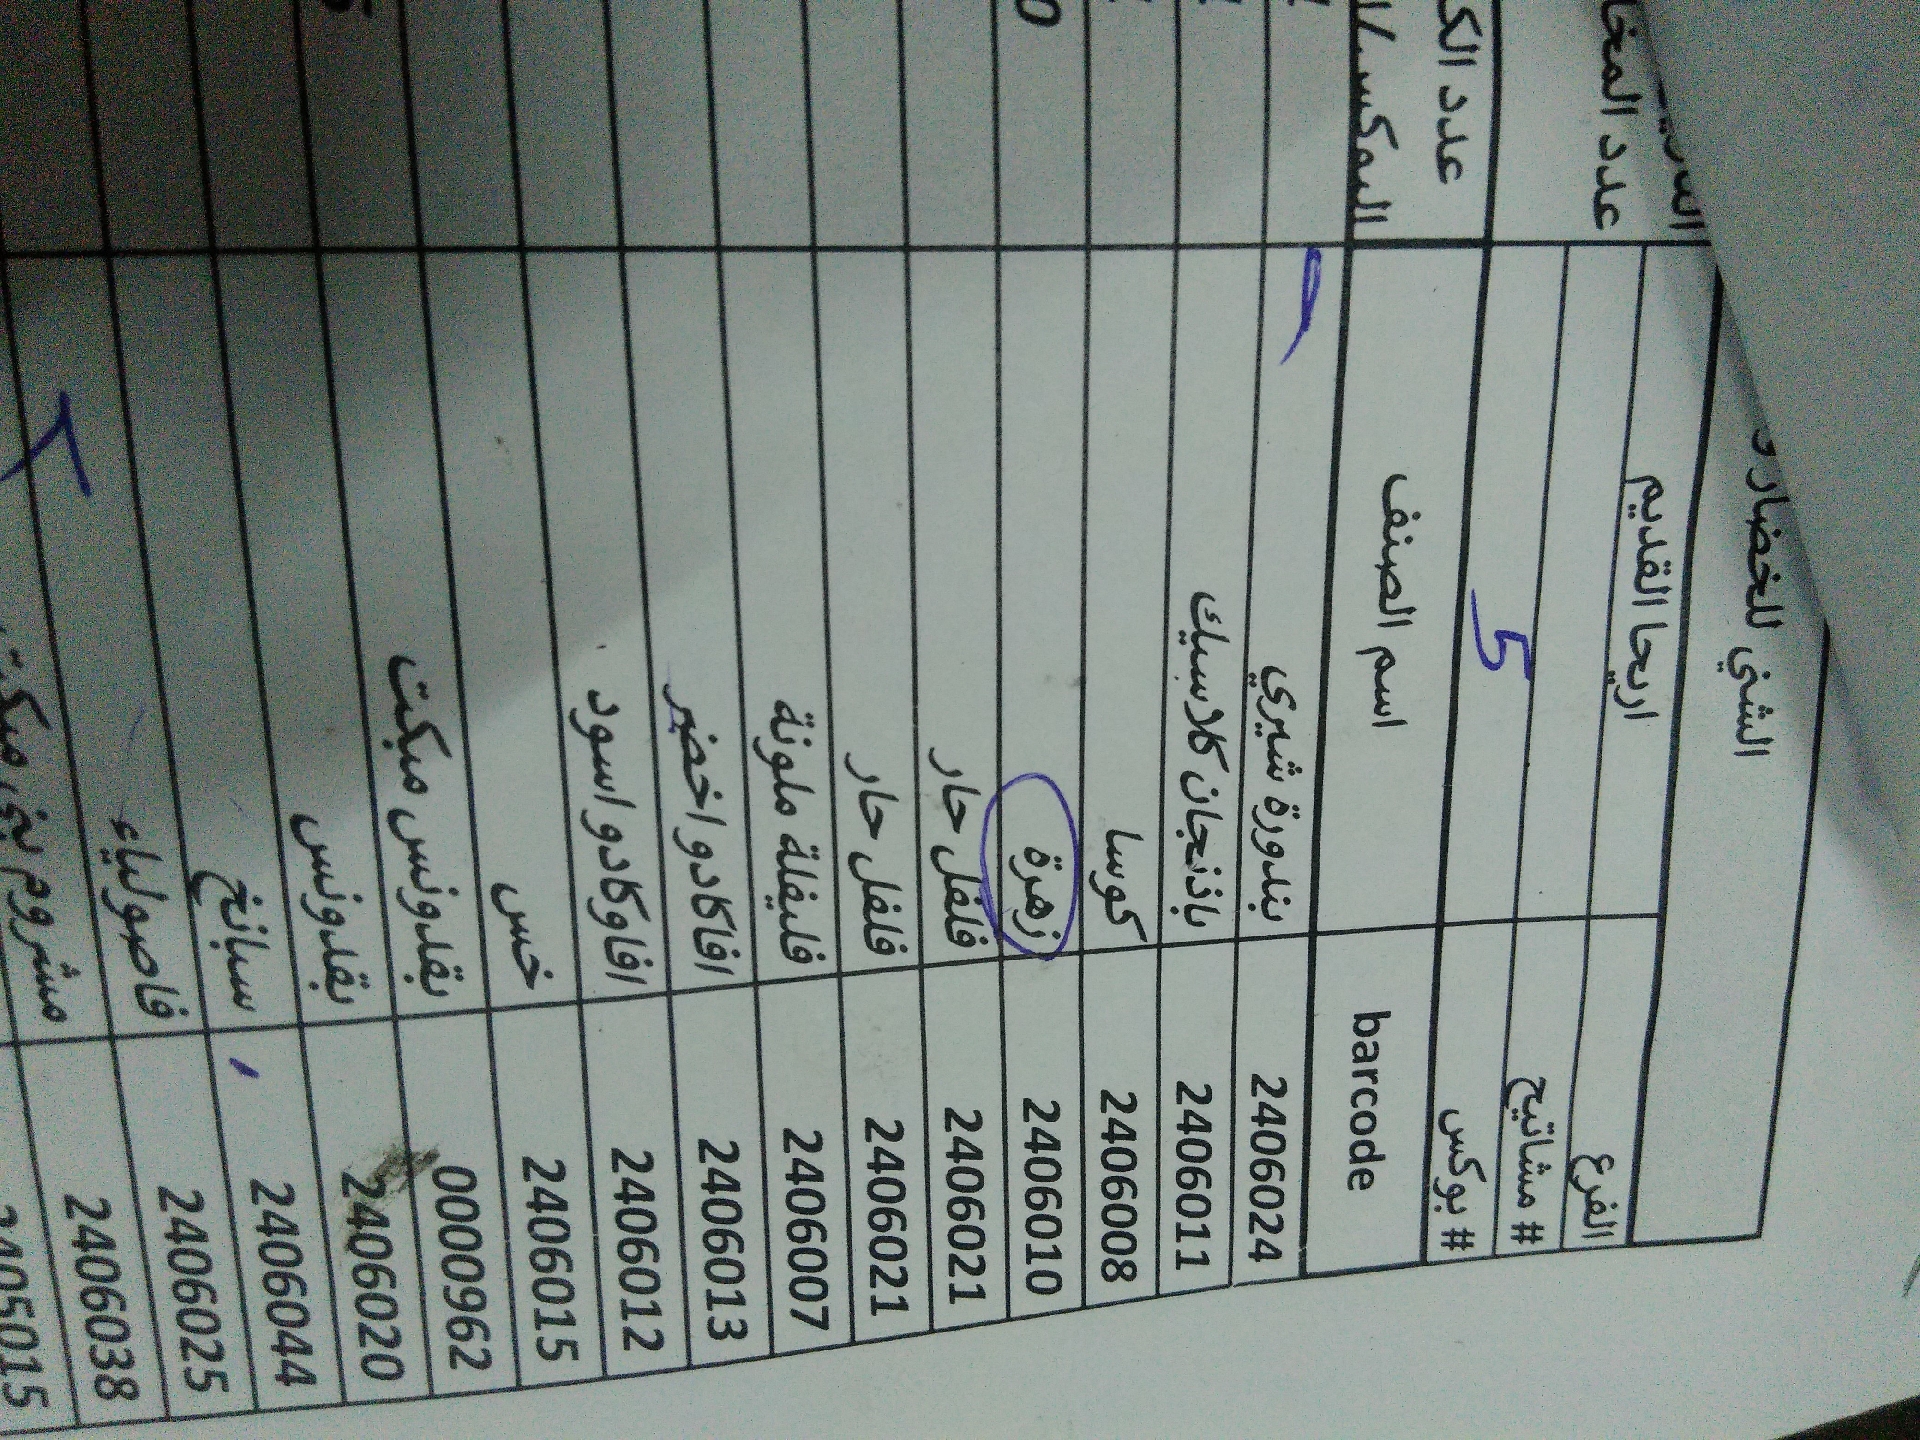 الشني للخضار و
الفرع اريحا القديم
# مشاتيح عدد
# بوكس 5
barcode اسم الصنف عدد
2406024 بندورة شيري
2406011 باذنجان كلاسيك
2406008 كوسا
2406010 زهرة
2406021 فلفل حار
2406021 فلفل حار
2406007 فليفلة ملونة
2406013 افاكادو اخضر
2406012 افاوكادو اسود
2406015 خس
0000962 بقدونس مبكت
2406020 بقدونس
2406044 سبانخ
2406025 فاصولياء
2406038 مشروم بني مبكت
2405015